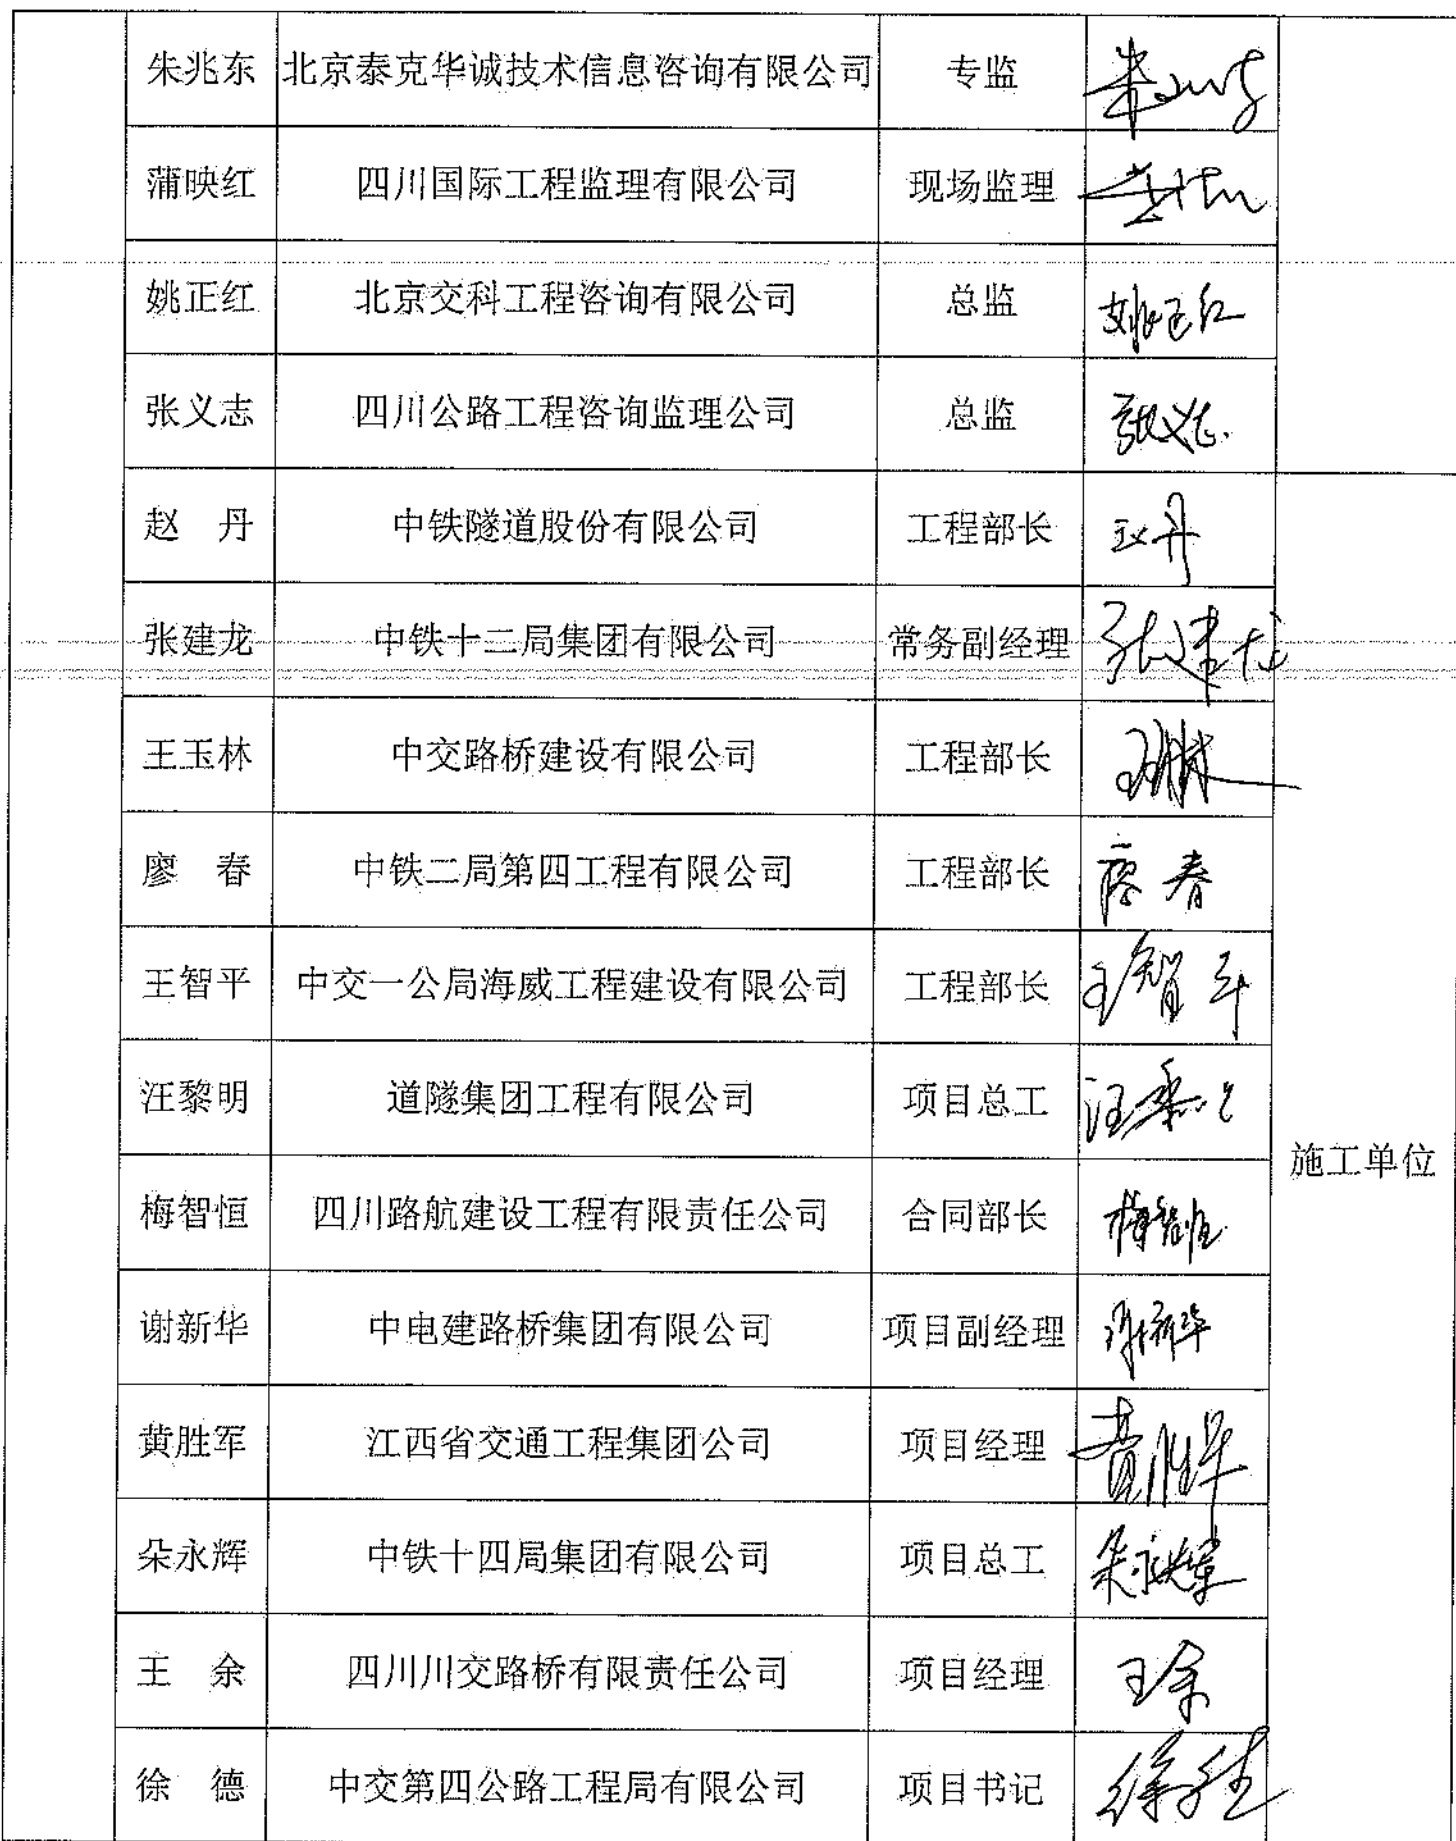 朱兆东 北京泰克华诚技术信息咨询有限公司 专监
蒲映红 四川国际工程监理有限公司 现场监理
姚正红 北京交科工程咨询有限公司 总监 姚正红
张义志 四川公路工程咨询监理公司 总监 张义志
赵 丹 中铁隧道股份有限公司 工程部长 赵丹
张建龙 中铁十二局集团有限公司 常务副经理 张建龙
王玉林 中交路桥建设有限公司 工程部长 王玉林
廖 春 中铁二局第四工程有限公司 工程部长 廖春
王智平 中交一公局海威工程建设有限公司 工程部长 王智平
汪黎明 道隧集团工程有限公司 项目总工 汪黎明
施工单位
梅智恒 四川路航建设工程有限责任公司 合同部长 梅智恒
谢新华 中电建路桥集团有限公司 项目副经理 谢新华
黄胜军 江西省交通工程集团公司 项目经理 黄胜军
朵永辉 中铁十四局集团有限公司 项目总工 朵永辉
王 余 四川川交路桥有限责任公司 项目经理 王余
徐 德 中交第四公路工程局有限公司 项目书记 徐德